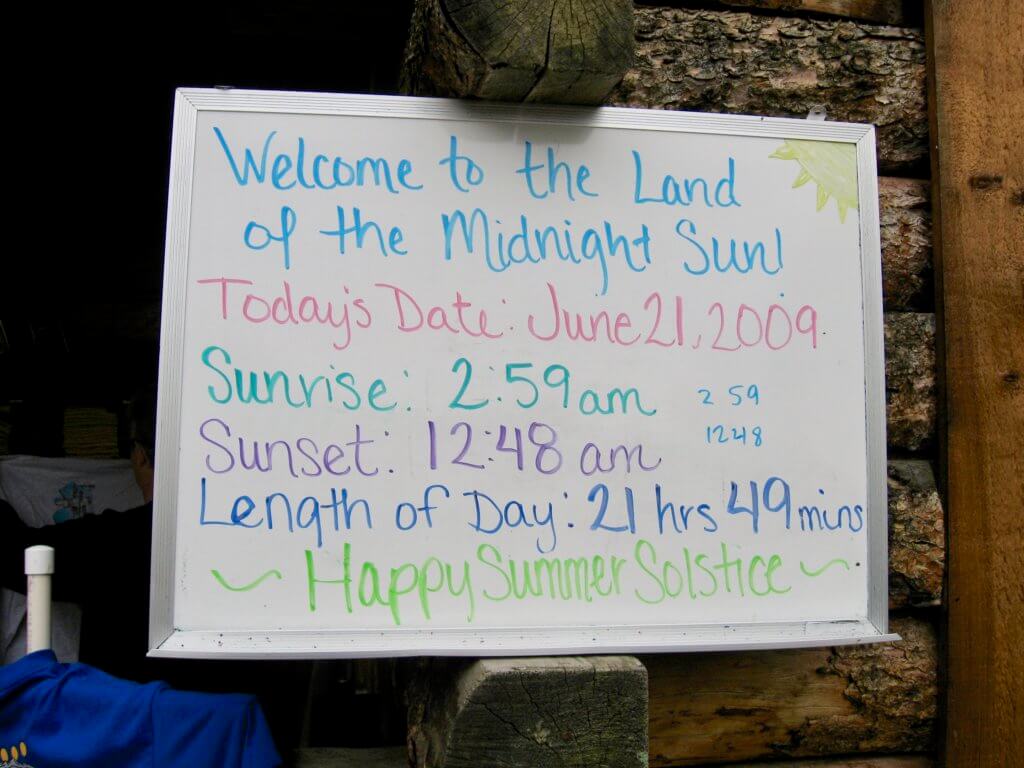 Welcome to the Land
of the Midnight Sun!
Today's Date: June 21, 2009.
Sunrise: 2:59 am
2 59
Sunset: 12:48 am
1248
Length of Day: 21 hrs 49 mins
~ Happy Summer Solstice ~